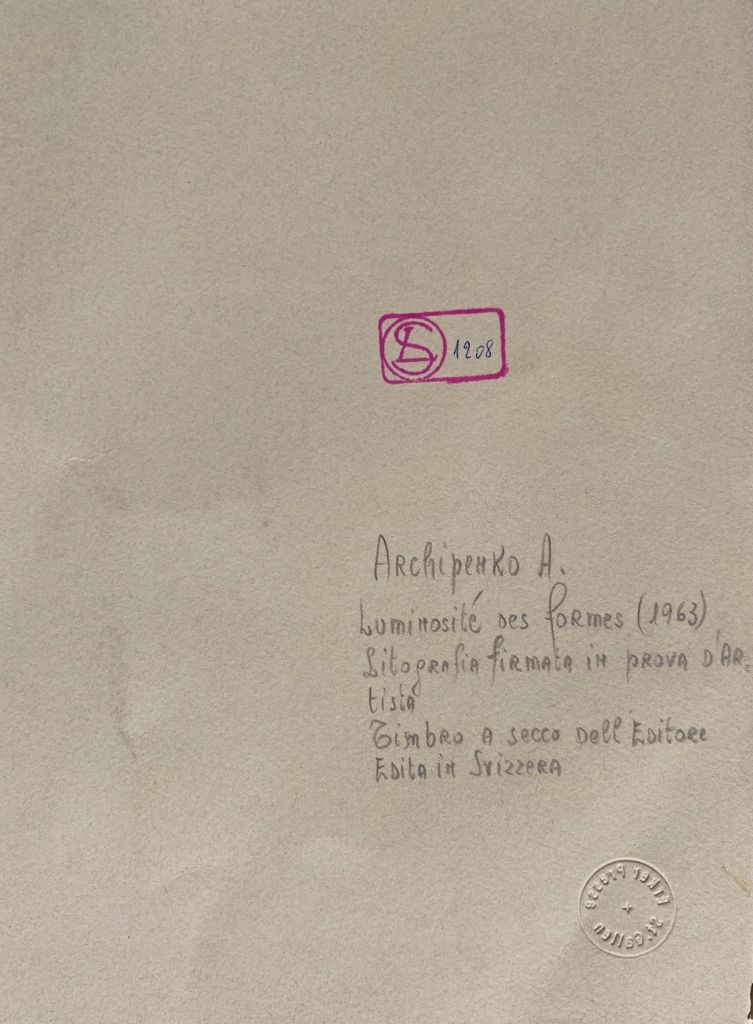 1208
Archipenko A.
Luminosité des formes (1963)
Litografia firmata in prova d'Ar-
tista
Timbro a secco dell'Editore
Edita in Svizzera
Erker Presse
St. Gallen